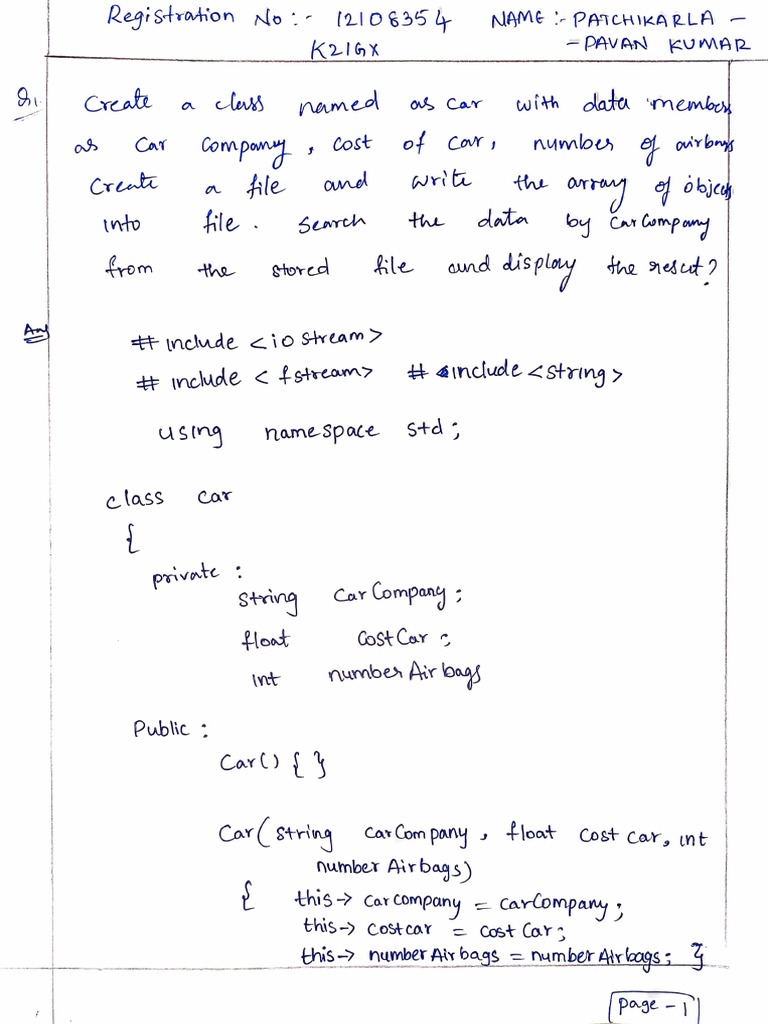 Registration No :- 12108354 NAME :- PATCHIKARLA -
K21GX - PAVAN KUMAR
Q1. Create a class named as car with data members
as Car Company, cost of car, number of airbags
Create a file and write the array of objects
into file. Search the data by CarCompany
from the stored file and display the result?
Ans
# include <iostream>
# include < fstream> # include <string>
using namespace std;
class car
{
private :
string CarCompany;
float CostCar;
int numberAirbags
Public :
Car() { }
Car(string carCompany, float cost car, int
numberAirbags)
{ this-> carcompany = carCompany;
this-> costcar = cost Car;
this-> numberAirbags = numberAirbags; }
page - 1